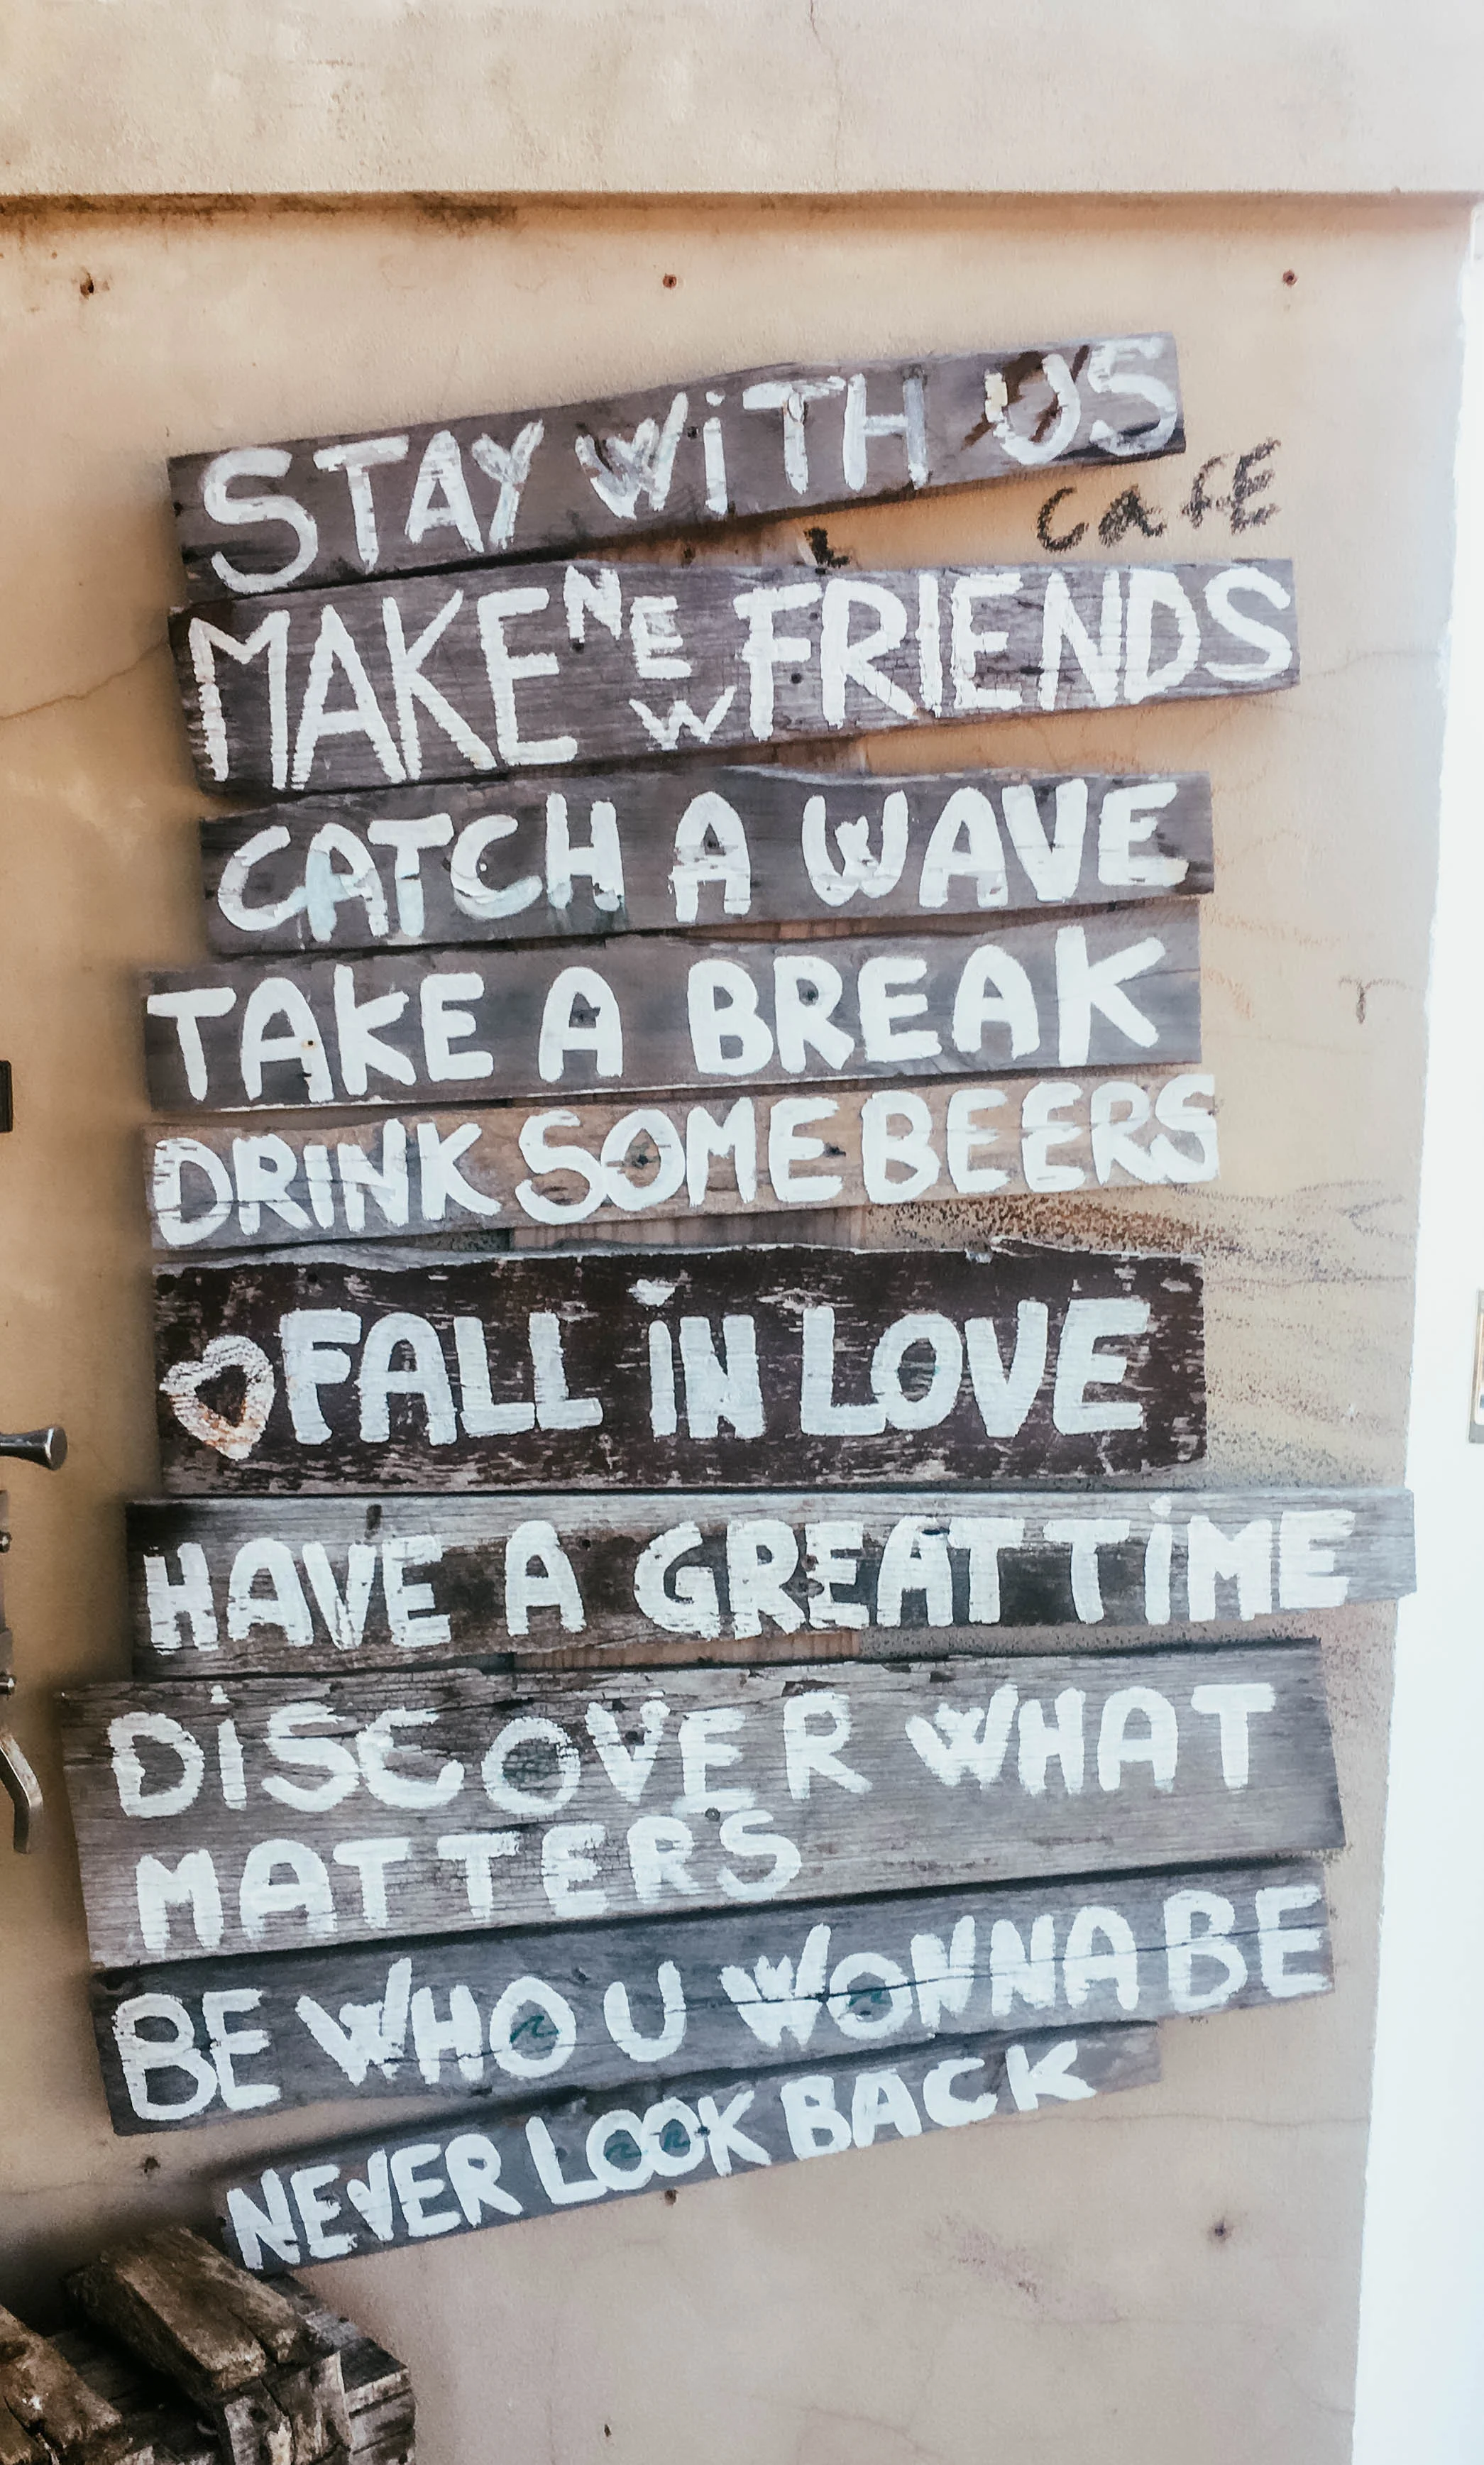 STAY WiTH US
CAFE
MAKE NEW FRIENDS
CATCH A WAVE
TAKE A BREAK
DRINK SOME BEERS
FALL iN LOVE
HAVE A GREAT TiME
DiSCOVER WHAT
MATTERS
BE WHO U WONNA BE
NEVER LOOK BACK